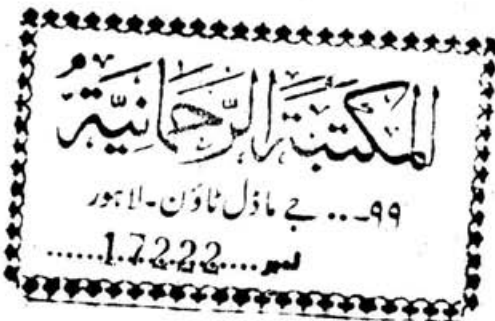 المكتبة الرحمانية
۹۹-... جے ماڈل ٹاؤن-لاہور
نمبر....17222......